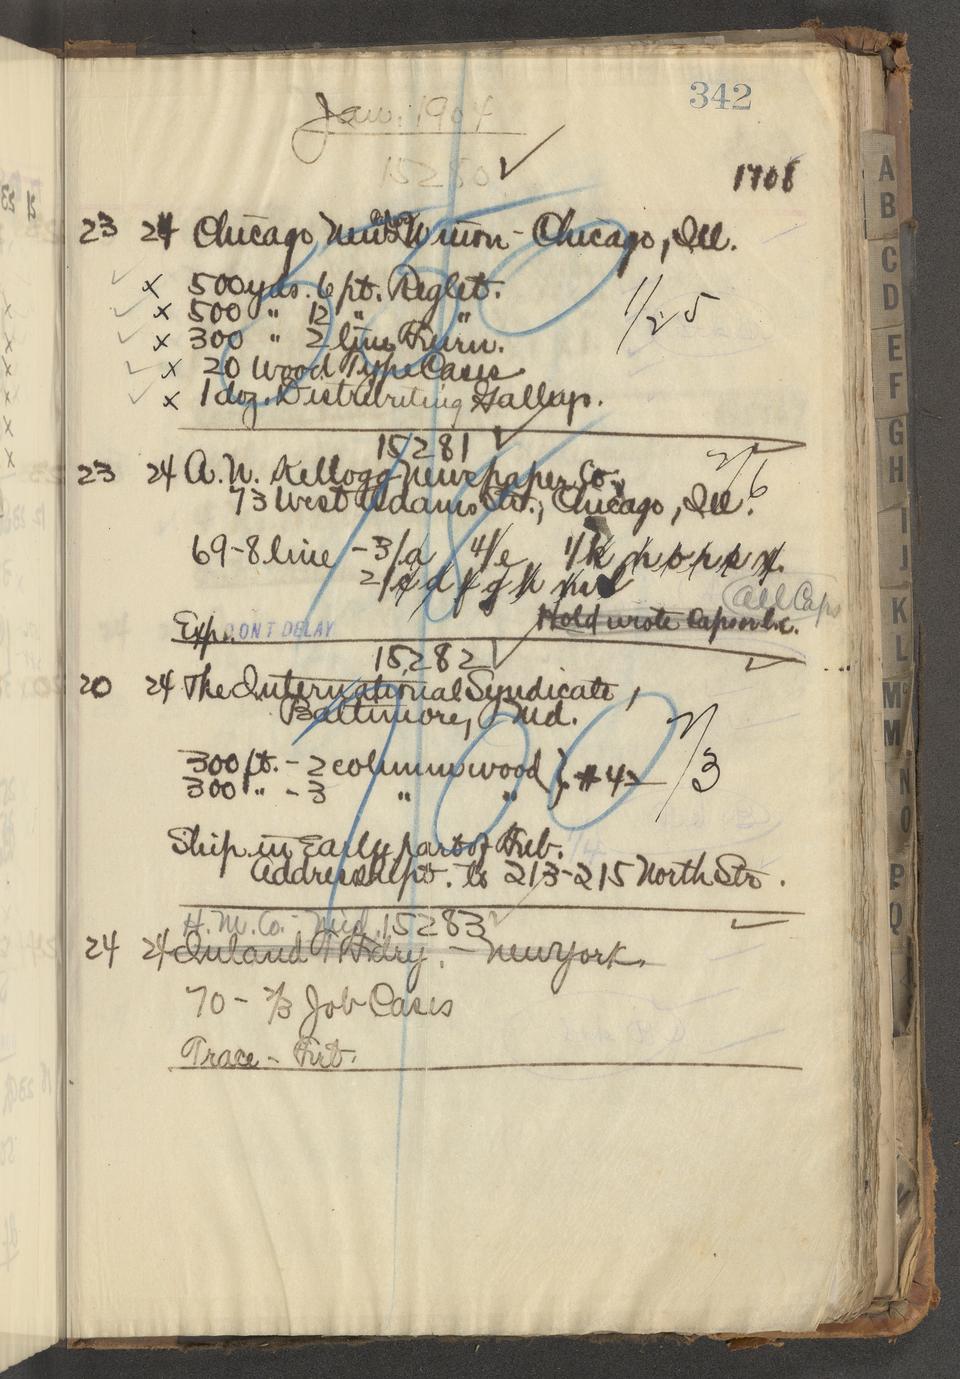 342
Jan. 1904
15280 ✓
1708
23 24 Chicago News Union - Chicago, Ill.
x 500 yds. 6 pt. Reglet.
x 500 " 12 " "
x 300 " 2 line Furn.
1/25
x 20 Wood Type Cases
x 1 doz. Distributing Galleys.
15281 ✓
23 24 A. N. Kellogg Newspaper Co.,
2/6
73 West Adams Str., Chicago, Ill.
69-8 line - 3/a 4/e 4/h n o r s
2/c d f g h
all Caps
Hold wrote Caps or l.c.
Exp. DON'T DELAY
15282 ✓
20 24 The International Syndicate,
Baltimore, Md.
700
2/3
300 ft. - 2 column wood } #4
300 " - 3 " "
Ship in Early part of Feb.
Address shpt. to 213-215 North Str.
H. M. Co. - Mfd. 15283
24 24 Inland T. Fdry. - New York.
70 - 2/3 Job Cases
Trace - Frt.
A
B
C
D
E
F
G
H
I
J
K
L
Mc
M
N
O
P
Q